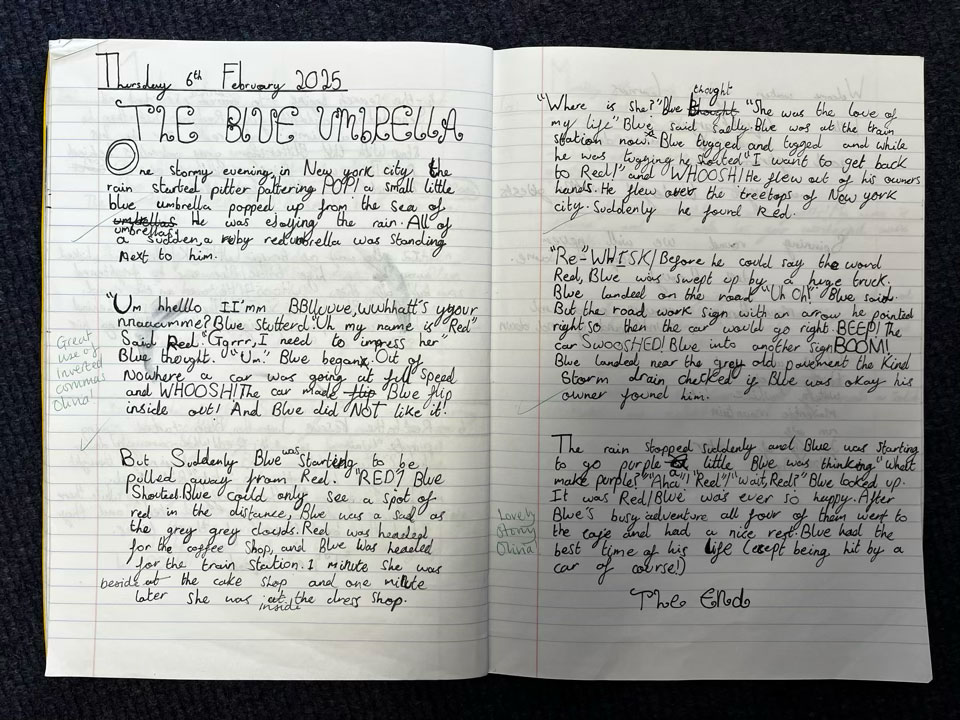 Thursday 6th February 2025
THE BLUE UMBRELLA
One stormy evening, in New York city the
rain started pitter pattering POP! a small little
blue umbrella popped up from the sea of
umbrellas
umbrellas. He was ejoying the rain. All of
a sudden, a ruby red umbrella was standing
next to him.
"Um hhelllo II'mm BBlluuue, wwhhatt's yyour
nnaaamme? Blue stutterd. Uh my name is "Red"
Said Red. "Ggrrr, I need to impress her"
Blue thought. "Um." Blue began. Out of
nowhere a car was going at full speed
and WHOOSH! The car made flip Blue flip
inside out! And Blue did NOT like it!
Great
use of
inverted
commas
Olivia!
But Suddenly Blue was starting to be
pulled away from Red. "RED"! Blue
Shouted. Blue could only see a spot of
red in the distance, Blue was a sad as
the grey grey clouds. Red was headed
for the coffee shop, and Blue was headed
for the train station. 1 minute she was
beside at the cake shop and one minute
later she was at the dress shop.
inside
thought
"Where is she?" Blue thought "She was the love of
my life" Blue said sadly. Blue was at the train
station now. Blue tugged and tugged and while
he was tugging he shouted "I want to get back
to Red!" and WHOOSH! He flew out of his owners
hands. He flew over the treetops of New york
city. Suddenly he found Red.
"Re-" WHISK! Before he could say the word
Red, Blue was swept up by a huge truck.
Blue landed on the road "Uh Oh!" Blue said.
But the road work sign with an arrow he pointed
right so then the car would go right. BEEP! The
car SWOOSHED! Blue into another sign BOOM!
Blue landed near the grey old pavement the Kind
Storm drain checked if Blue was okay his
owner found him.
The rain stopped suddenly and Blue was starting
to go purple a little Blue was thinking "what
make purple?" "Aha"! "Red"! "Wait, Red?" Blue looked up.
It was Red! Blue was ever so happy. After
Blue's busy adventure all four of them went to
the cafe and had a nice rest. Blue had the
best time of his life (exept being, hit by a
car of course!)
Lovely
story
Olivia
The End